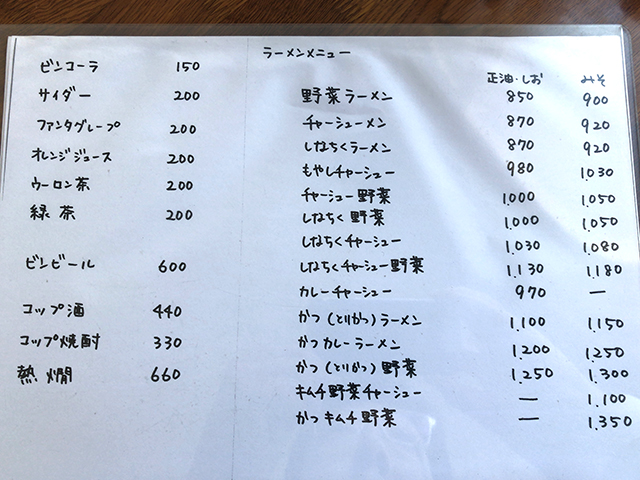 ビンコーラ 150
サイダー 200
ファンタグレープ 200
オレンジジュース 200
ウーロン茶 200
緑茶 200
ビンビール 600
コップ酒 440
コップ焼酎 330
熱燗 660
ラーメンメニュー
正油・しお みそ
野菜ラーメン 850 900
チャーシューメン 870 920
しなちくラーメン 870 920
もやしチャーシュー 980 1.030
チャーシュー野菜 1.000 1.050
しなちく野菜 1.000 1.050
しなちくチャーシュー 1.030 1.080
しなちくチャーシュー野菜 1.130 1.180
カレーチャーシュー 970 ー
かつ(とりかつ)ラーメン 1.100 1.150
かつカレーラーメン 1.200 1.250
かつ(とりかつ)野菜 1.250 1.300
キムチ野菜チャーシュー ー 1.100
かつキムチ野菜 ー 1.350